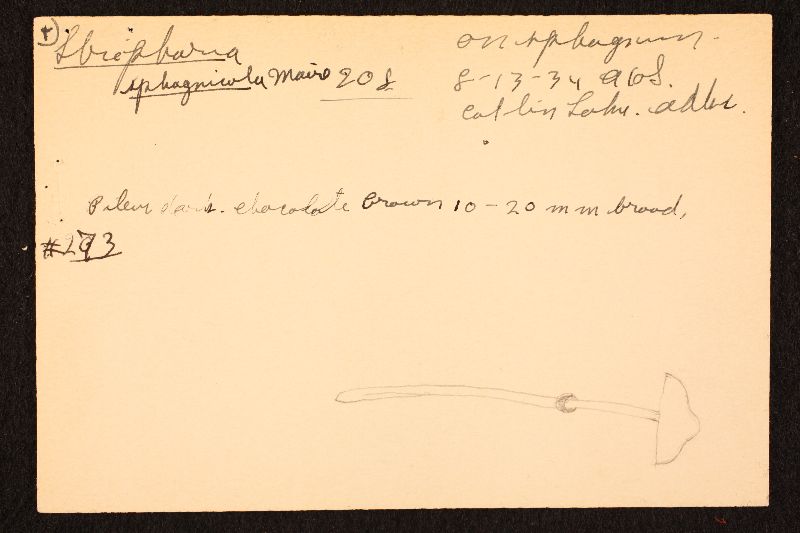 Stropharia
sphagnicola Maire 208
on sphagnum.
8-13-34 AHS.
Catlin Lake. Adks.
Pileus dark chocolate brown 10-20 mm broad,
#293